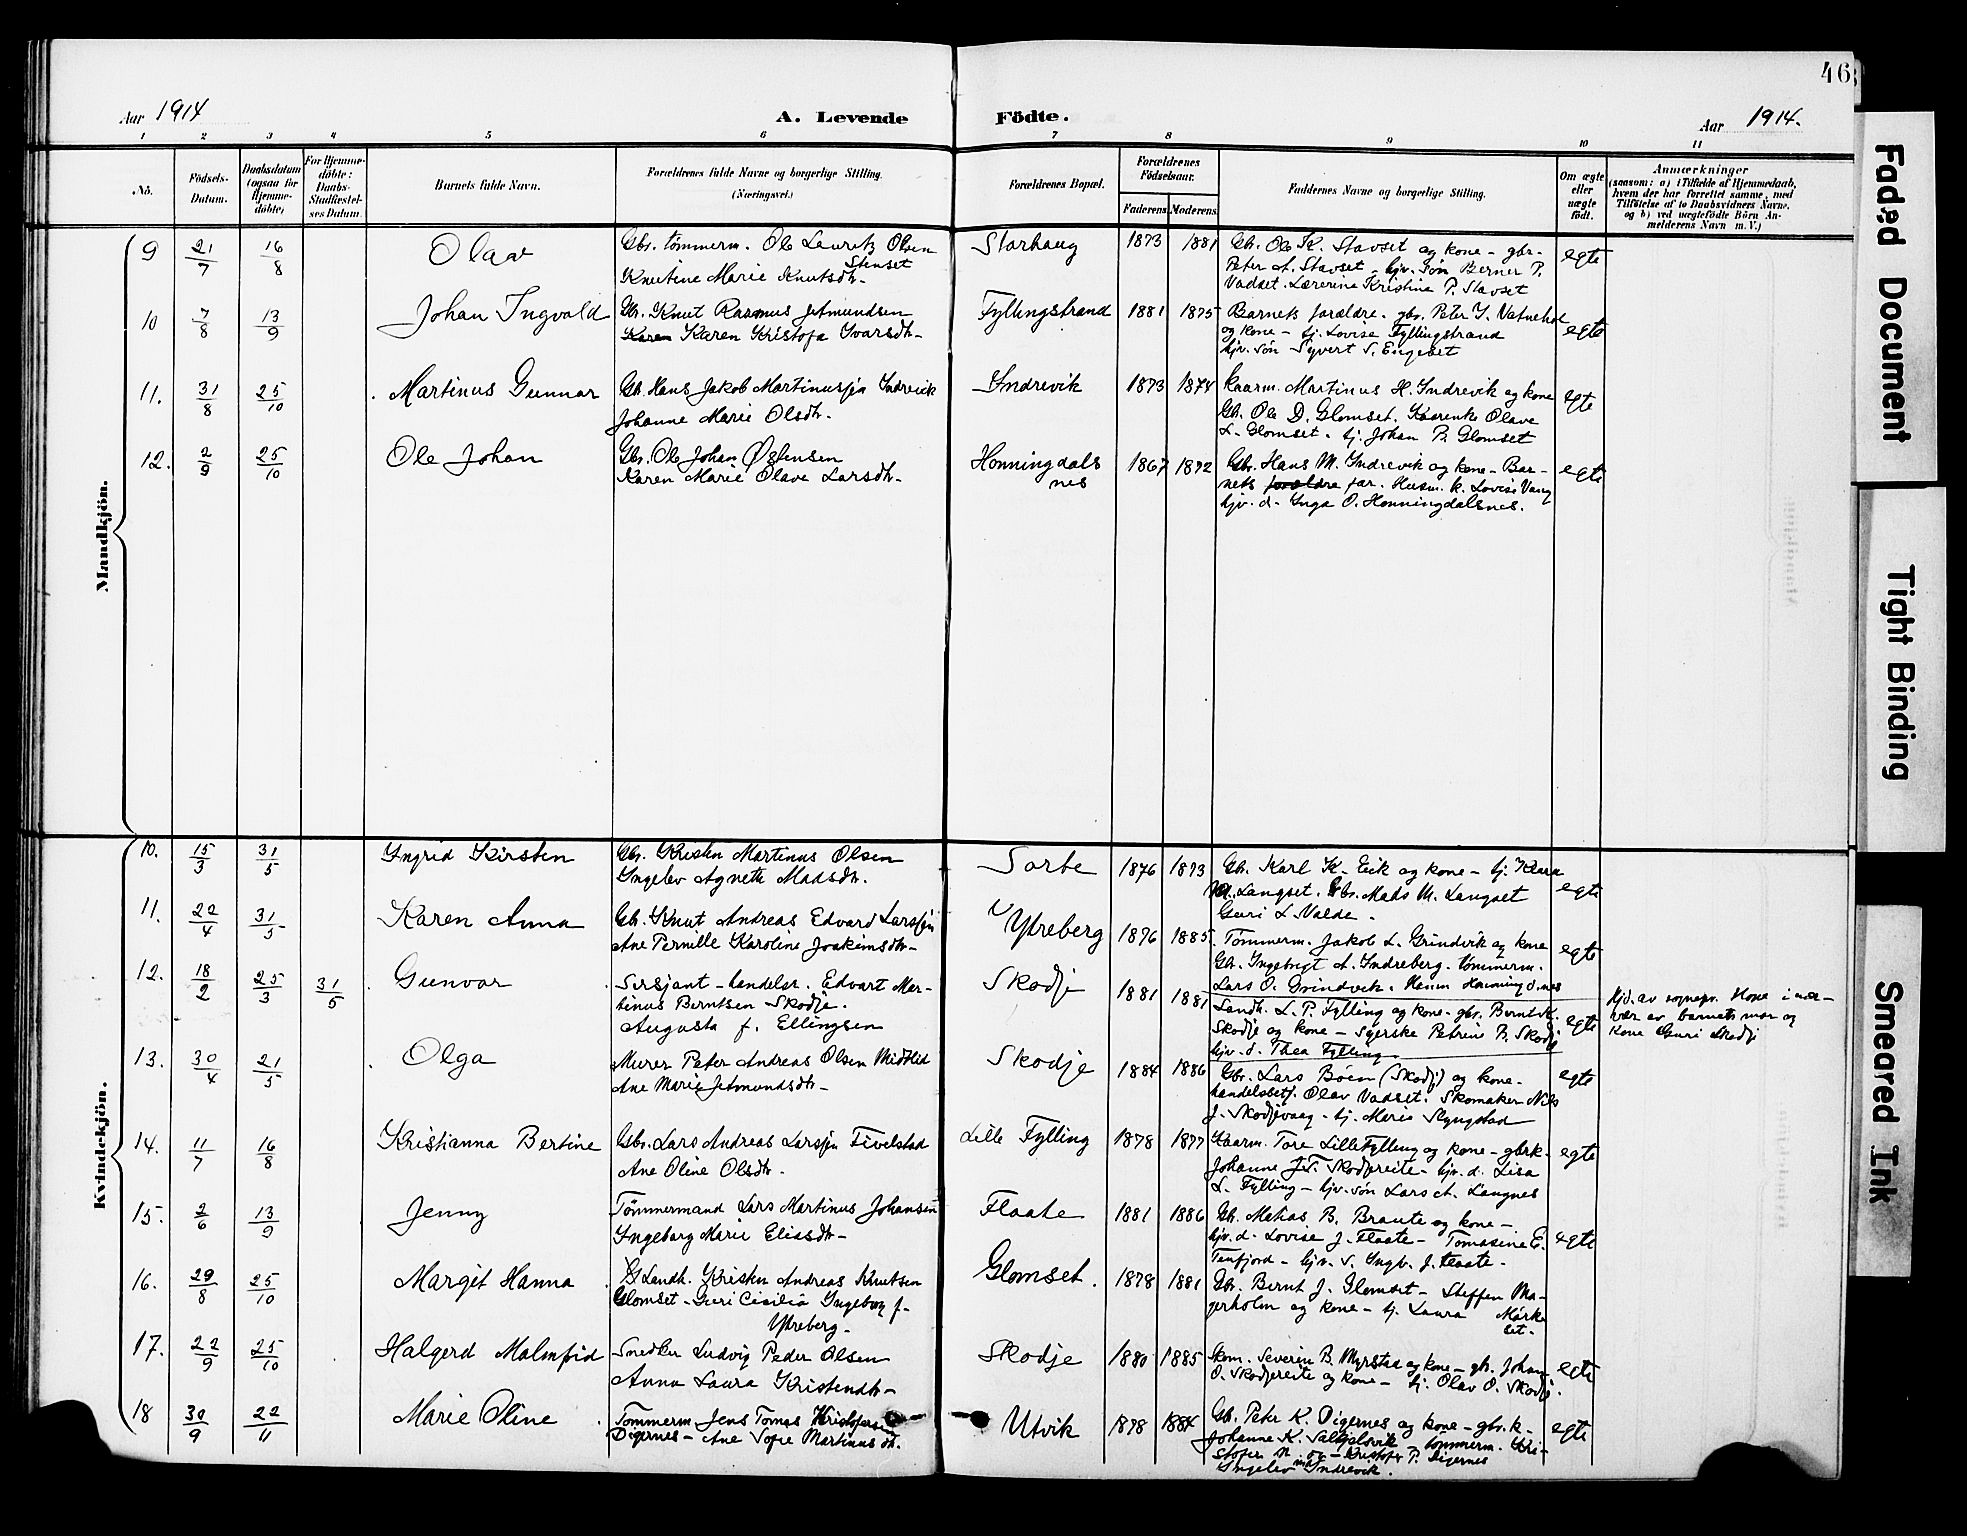 46
Aar 1914
A. Levende Födte.
Aar 1914.
1 2 3 4 5 6 7 8 9 10 11
No.
Födsels-Datum.
Daabsdatum (ogsaa for Hjemmedöbte)
For Hjemmedöbte: Daabs-Stadfæstelses Datum.
Barnets fulde Navn.
Forældrenes fulde Navne og borgerlige Stilling.
(Næringsvei.)
Forældrenes Bopæl.
Forældrenes Födselsaar.
Faderens Moderens
Faddernes Navne og borgerlige Stilling.
Om ægte eller uægte födt.
Anmærkninger
(saasom: a) i Tilfælde af Hjemmedaab, hvem der har forrettet samme, med Tilföielse af to Daabsvidners Navne, og b) ved uægtefödte Börn Anmelderens Navn m. V.)
Mandkjön.
9 21/7 16/8 Olav
Gbr. tömmerm. Ole Lauritz Olsen
Stenset
Knutine Marie Knutsdtr.
Storhaug 1873 1881
Gbr. Ole K. Stavset og kone - gbr.
Peter A. Stavset - hjv. sön Berner P.
Vadset. Lærerine Kristine P. Stavset
egte
10 7/8 13/9 Johan Ingvald
Gbr. Knut Rasmus Jetmundsen
Karen Karen Kristofa Ivarsdtr-
Fyllingstrand 1881 1875
Barnets forældre. gbr. Peter I. Vatnehol
og kone - tj. Lovise Fyllingstrand
hjv. sön Syvert S. Engeset
egte
11. 31/8 25/10 Martinus Gunnar
Gbr. Hans Jakob Martinussen Indrevik
Johanne Marie Olsdtr.
Indrevik 1873 1874
Kaarm. Martinus H. Indrevik og kone
Gbr. Ole D. Glomset. Kaarenke Olave
L. Glomset. tj. Johan P. Glomset
egte
12. 2/9 25/10 Ole Johan
Gbr. Ole Johan Östensen
Karen Marie Olave Larsdtr.
Honningdals
nes 1867 1872
Gbr. Hans M. Indrevik og kone - Bar-
nets forældre far. Husm. k. Lovise Vaag
hjv. d. Inga O. Honningdalsnes.
egte
Kvindekjön.
10. 15/3 31/5 Ingrid Kirsten
Gbr. Kristen Martinus Olsen
Ingelev Agnete Madsdtr.
Sorte 1876 1873
Gbr. Karl K. Eik og kone - tj. Klara
M. Langset. Gbr. Mads M. Langset
Guri L. Valde.
egte
11. 22/4 31/5 Karen Anna
Gbr. Knut Andreas Edvard Larssen
Ane Pernille Karoline Joakimsdtr-
Ytreberg 1876 1885
Tömmerm. Jakob L. Grindvik og kone
Gbr. Ingebrigt A. Indreberg. tömmerm.
Lars O. Grindvik. Husm Honningd.nes
egte
12. 18/2 25/3 31/5 Gunvor
Sersjant - handelsr. Edvart Mar-
tinus Berntsen Skodje.
Augusta f. Ellingsen
Skodje 1881 1881
Landh. L. P. Fylling og kone - gbr. Bernt K.
Skodje og kone - Syerske Petrine B. Skodje
hjv. d. Thea Fylling
egte
Hjd. av sognepr. Hone i nær-
vær av barnets mor og
kone Guri Skodje
13. 30/4 21/5 Olga
Murer Peter Andreas Olsen Midtlid
Ane Marie Jetmundsdtr-
Skodje 1884 1886
Gbr. Lars Böen (Skodje) og kone-
handelsbetj. Olav Vadset. Skomaker Nils
J. Skodjevaag - tj. Marie Slyngstad
egte
14. 11/7 16/8 Kristianna Bertine
Gbr. Lars Andreas Larssen Fivelstad
Ane Oline Olsdtr.
Lille Fylling 1878 1877
Kaarm. Tore Lillefylling og kone - gbrk.
Johanne J. T. Skodjereite - hjv. d. Lisa
L. Fylling - hjv. sön Lars A. Langnes
egte
15. 2/6 13/9 Jenny
Tömmermand Lars Martinus Johansen
Ingeborg Marie Eliasdtr-
Flaate 1881 1886
Gbr. Matias B. Braute og kone-
hjv. d. Lovise J. Flaate - Tomasine E.
Tenfjord - hjv. s. Ingb. J. Flaate.
egte
16. 29/8 25/10 Margit Hanna
Landh. Kristen Andreas Knutsen
Glomset - Guri Cicilia Ingeborg f.
Ytreberg.
Glomset. 1878 1881
Gbr. Bernt J. Glomset - Steffen Ma-
gerholm og kone - tj. Laura Mörke
set.
17. 22/9 25/10 Halgerd Malmfrid
Snedker Ludvig Peder Olsen
Anna Laura Kristendtr-
Skodje 1880 1885
Skom. Severin B. Myrstad og kone - gbr. Johan
O. Skodjereite og kone - tj. Olav O. Skodje.
egte
18 30/9 22/11 Marie Oline
Tömmerm Jens Tomas Kristofersen
Digernes - Ane Sofie Martinusdtr.
Utvik 1878 1884
Gbr. Peter K. Digernes og kone - gbr. k.
Johanne K. - tömmerm. Kri-
stofer N. og - Kristofer P. Digernes
Ingelev Indrevik.
egte
Faded Document
Tight Binding
Smeared Ink